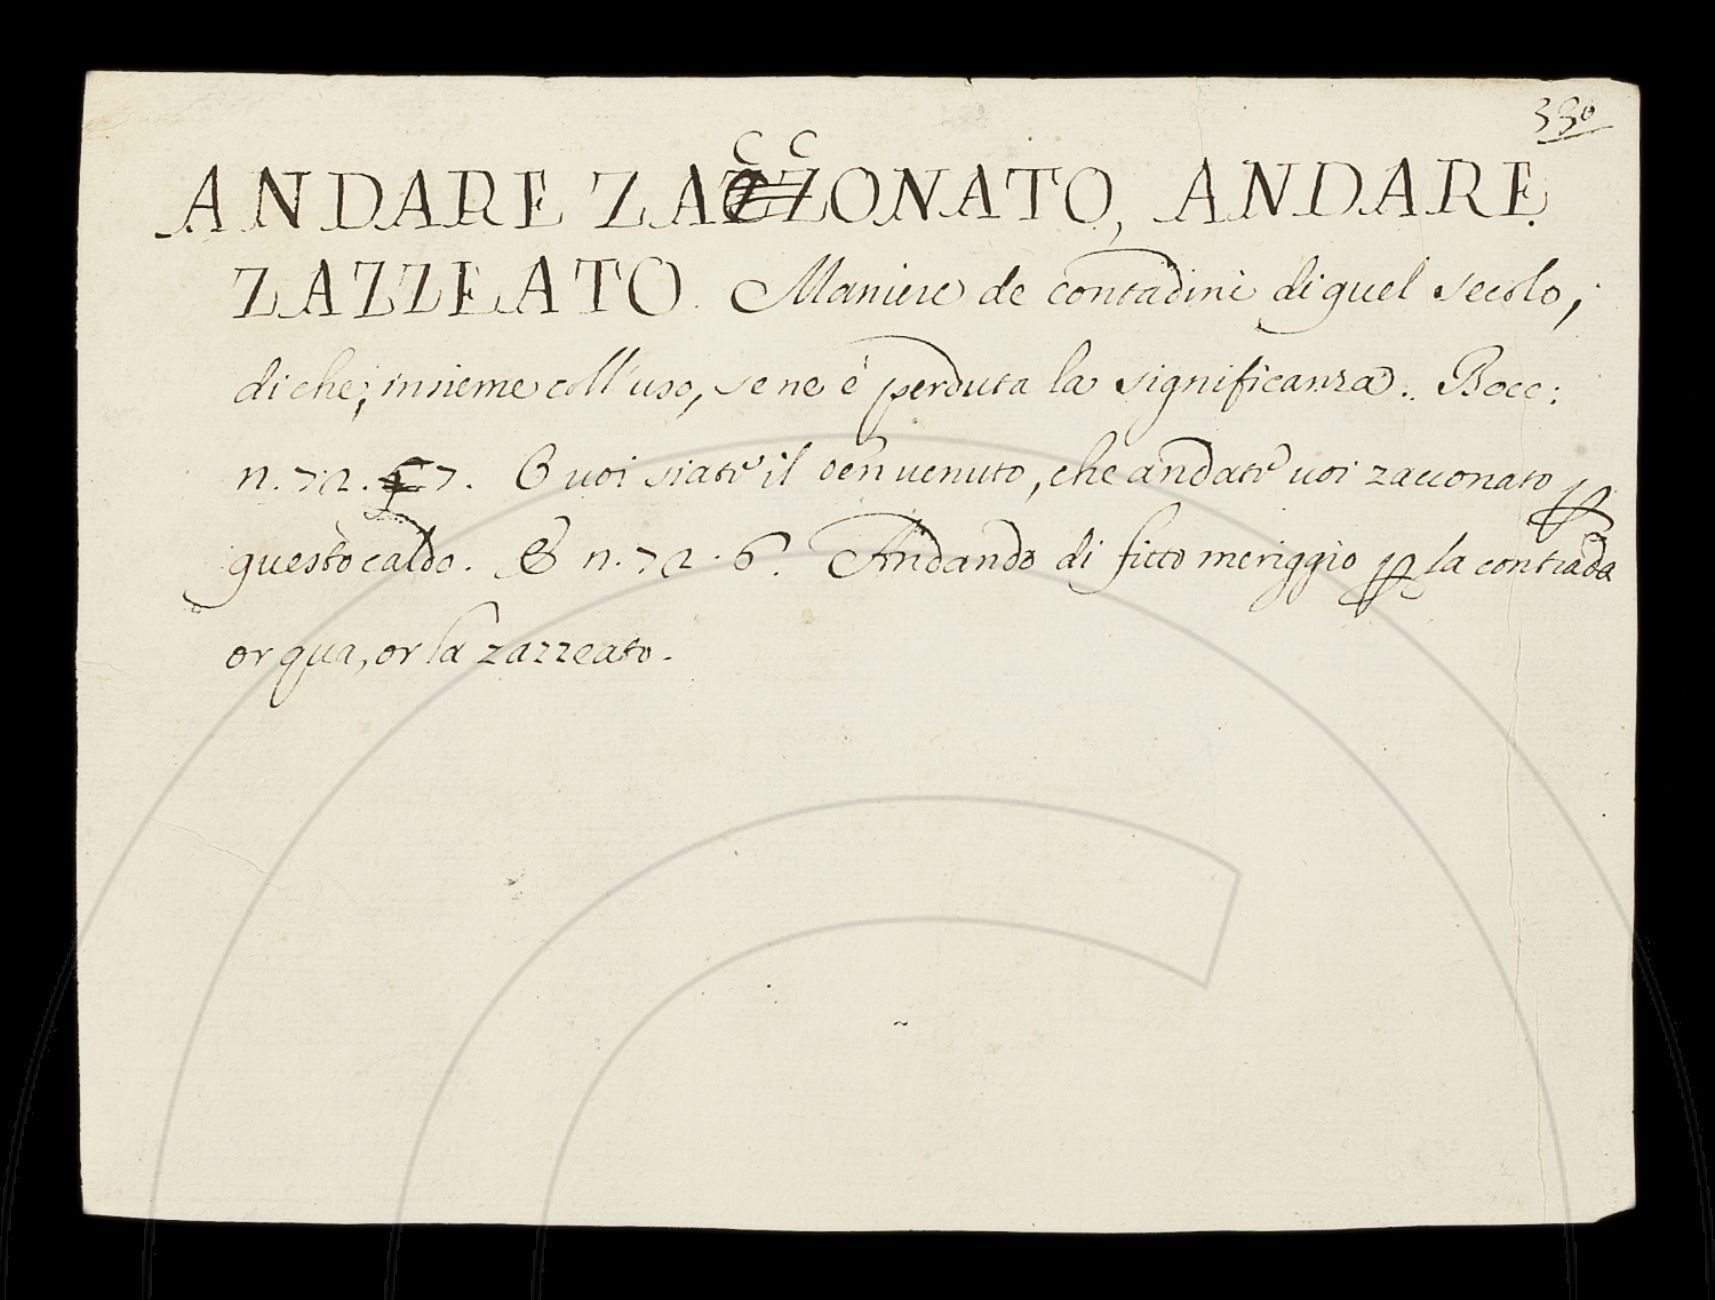 390
ANDARE ZACCONATO, ANDARE
ZAZZEATO. Maniere de contadini di quel secolo,
di che, insieme coll'uso, se ne è perduta la significanza. Bocc:
n. 72. 7. O voi siate il ben venuto, che andate voi zacconato ꝑ
questo caldo. & n. 72. 6. Andando di fitto meriggio ꝑ la contrada
or qua, or la zazzeato.